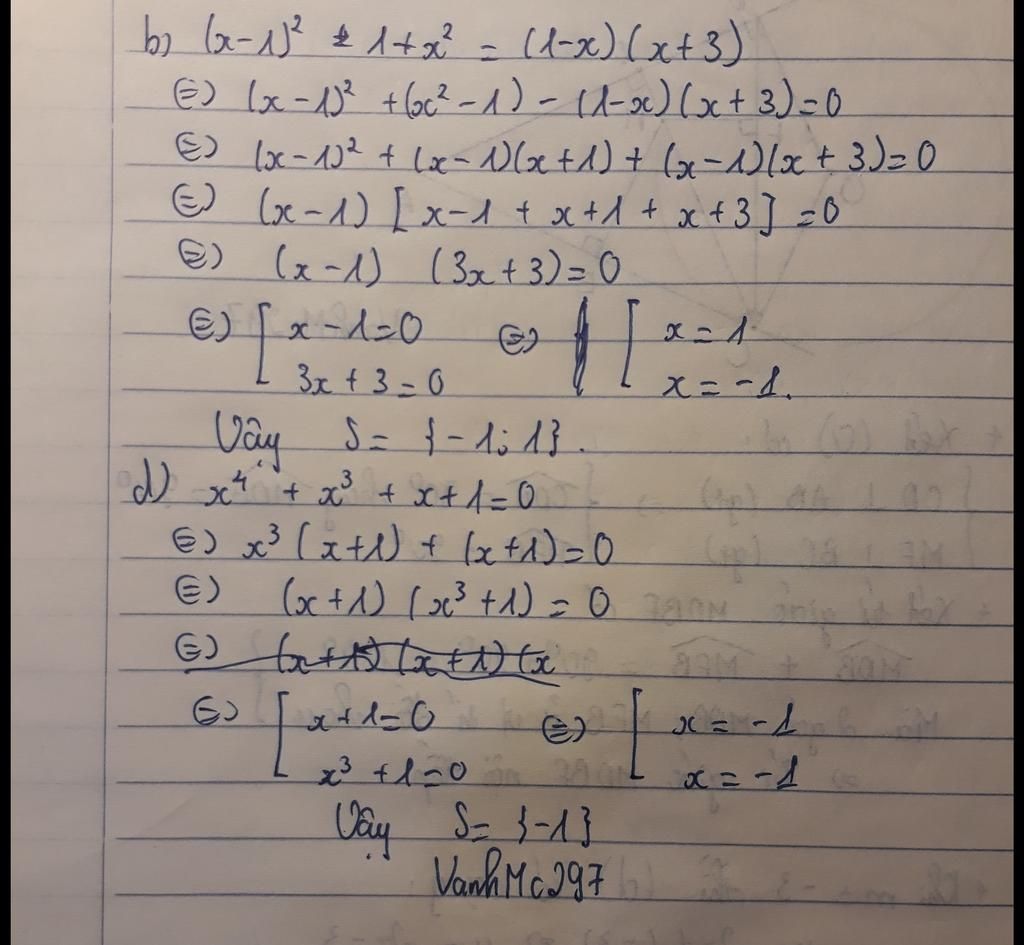 b) (x-1)² ± 1+x² = (1-x)(x+3)
⇔ (x-1)² + (x²-1) - (1-x)(x+3)=0
⇔ (x-1)² + (x-1)(x+1) + (x-1)(x+3)=0
⇔ (x-1) [x-1 + x+1 + x+3] =0
⇔ (x-1) (3x+3)=0
⇔ [ x-1=0 ⇔ [ x=1
3x+3=0 x=-1.
Vậy S= {-1; 1}.
d) x⁴ + x³ + x+1=0
⇔ x³(x+1) + (x+1)=0
⇔ (x+1) (x³+1) = 0
⇔ (x+1) (x+1) (x
⇔ [ x+1=0 ⇔ [ x=-1
x³+1=0 x=-1
Vậy S= {-1}
VanhMc297